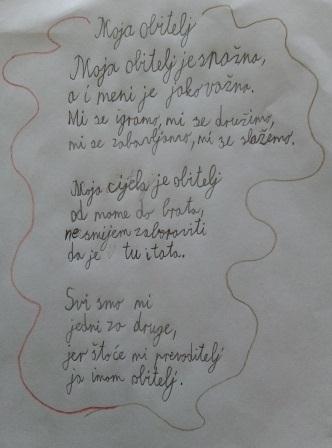 Moja obitelj
Moja obitelj je snažna,
a i meni je jako važna.
Mi se igramo, mi se družimo,
mi se zabavljamo, mi se slažemo.
Moja cijela je obitelj
od mame do brata,
ne smijem zaboraviti
da je tu i tata.
Svi smo mi
jedni za druge,
jer što će mi prevoditelj
ja imam obitelj.